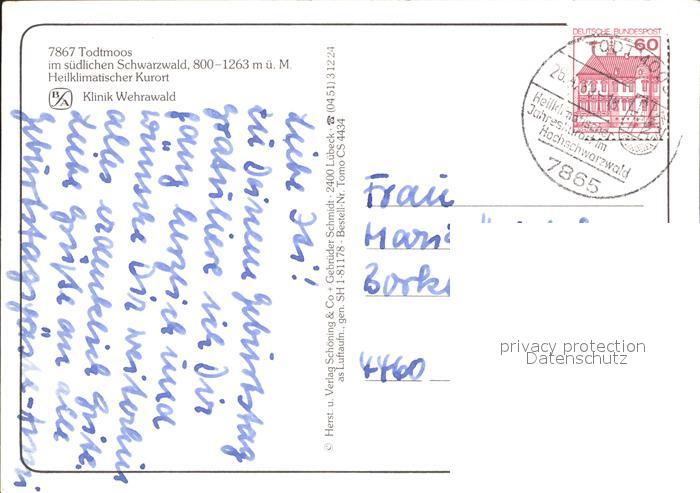 7867 Todtmoos
im südlichen Schwarzwald, 800–1263 m ü. M.
Heilklimatischer Kurort
B/A Klinik Wehrawald
Liebe
zu Deinem Geburtstag
gratuliere ich Dir
ganz herzlich und
wünsche Dir weiterhin
alles erdenklich Gute.
Liebe Grüße an alle
Geburtstagsgäste
© Herst. u. Verlag Schöning & Co + Gebrüder Schmidt · 2400 Lübeck · ☎ (04 51) 3 12 24
as Luftaufn., gen. SH 1-81178 · Bestell-Nr. Tomo CS 4434
DEUTSCHE BUNDESPOST
60
TODTMOOS
Heilklimatischer
Hochschwarzwald
7865
Frau
Mari
Bork
4460
privacy protection
Datenschutz